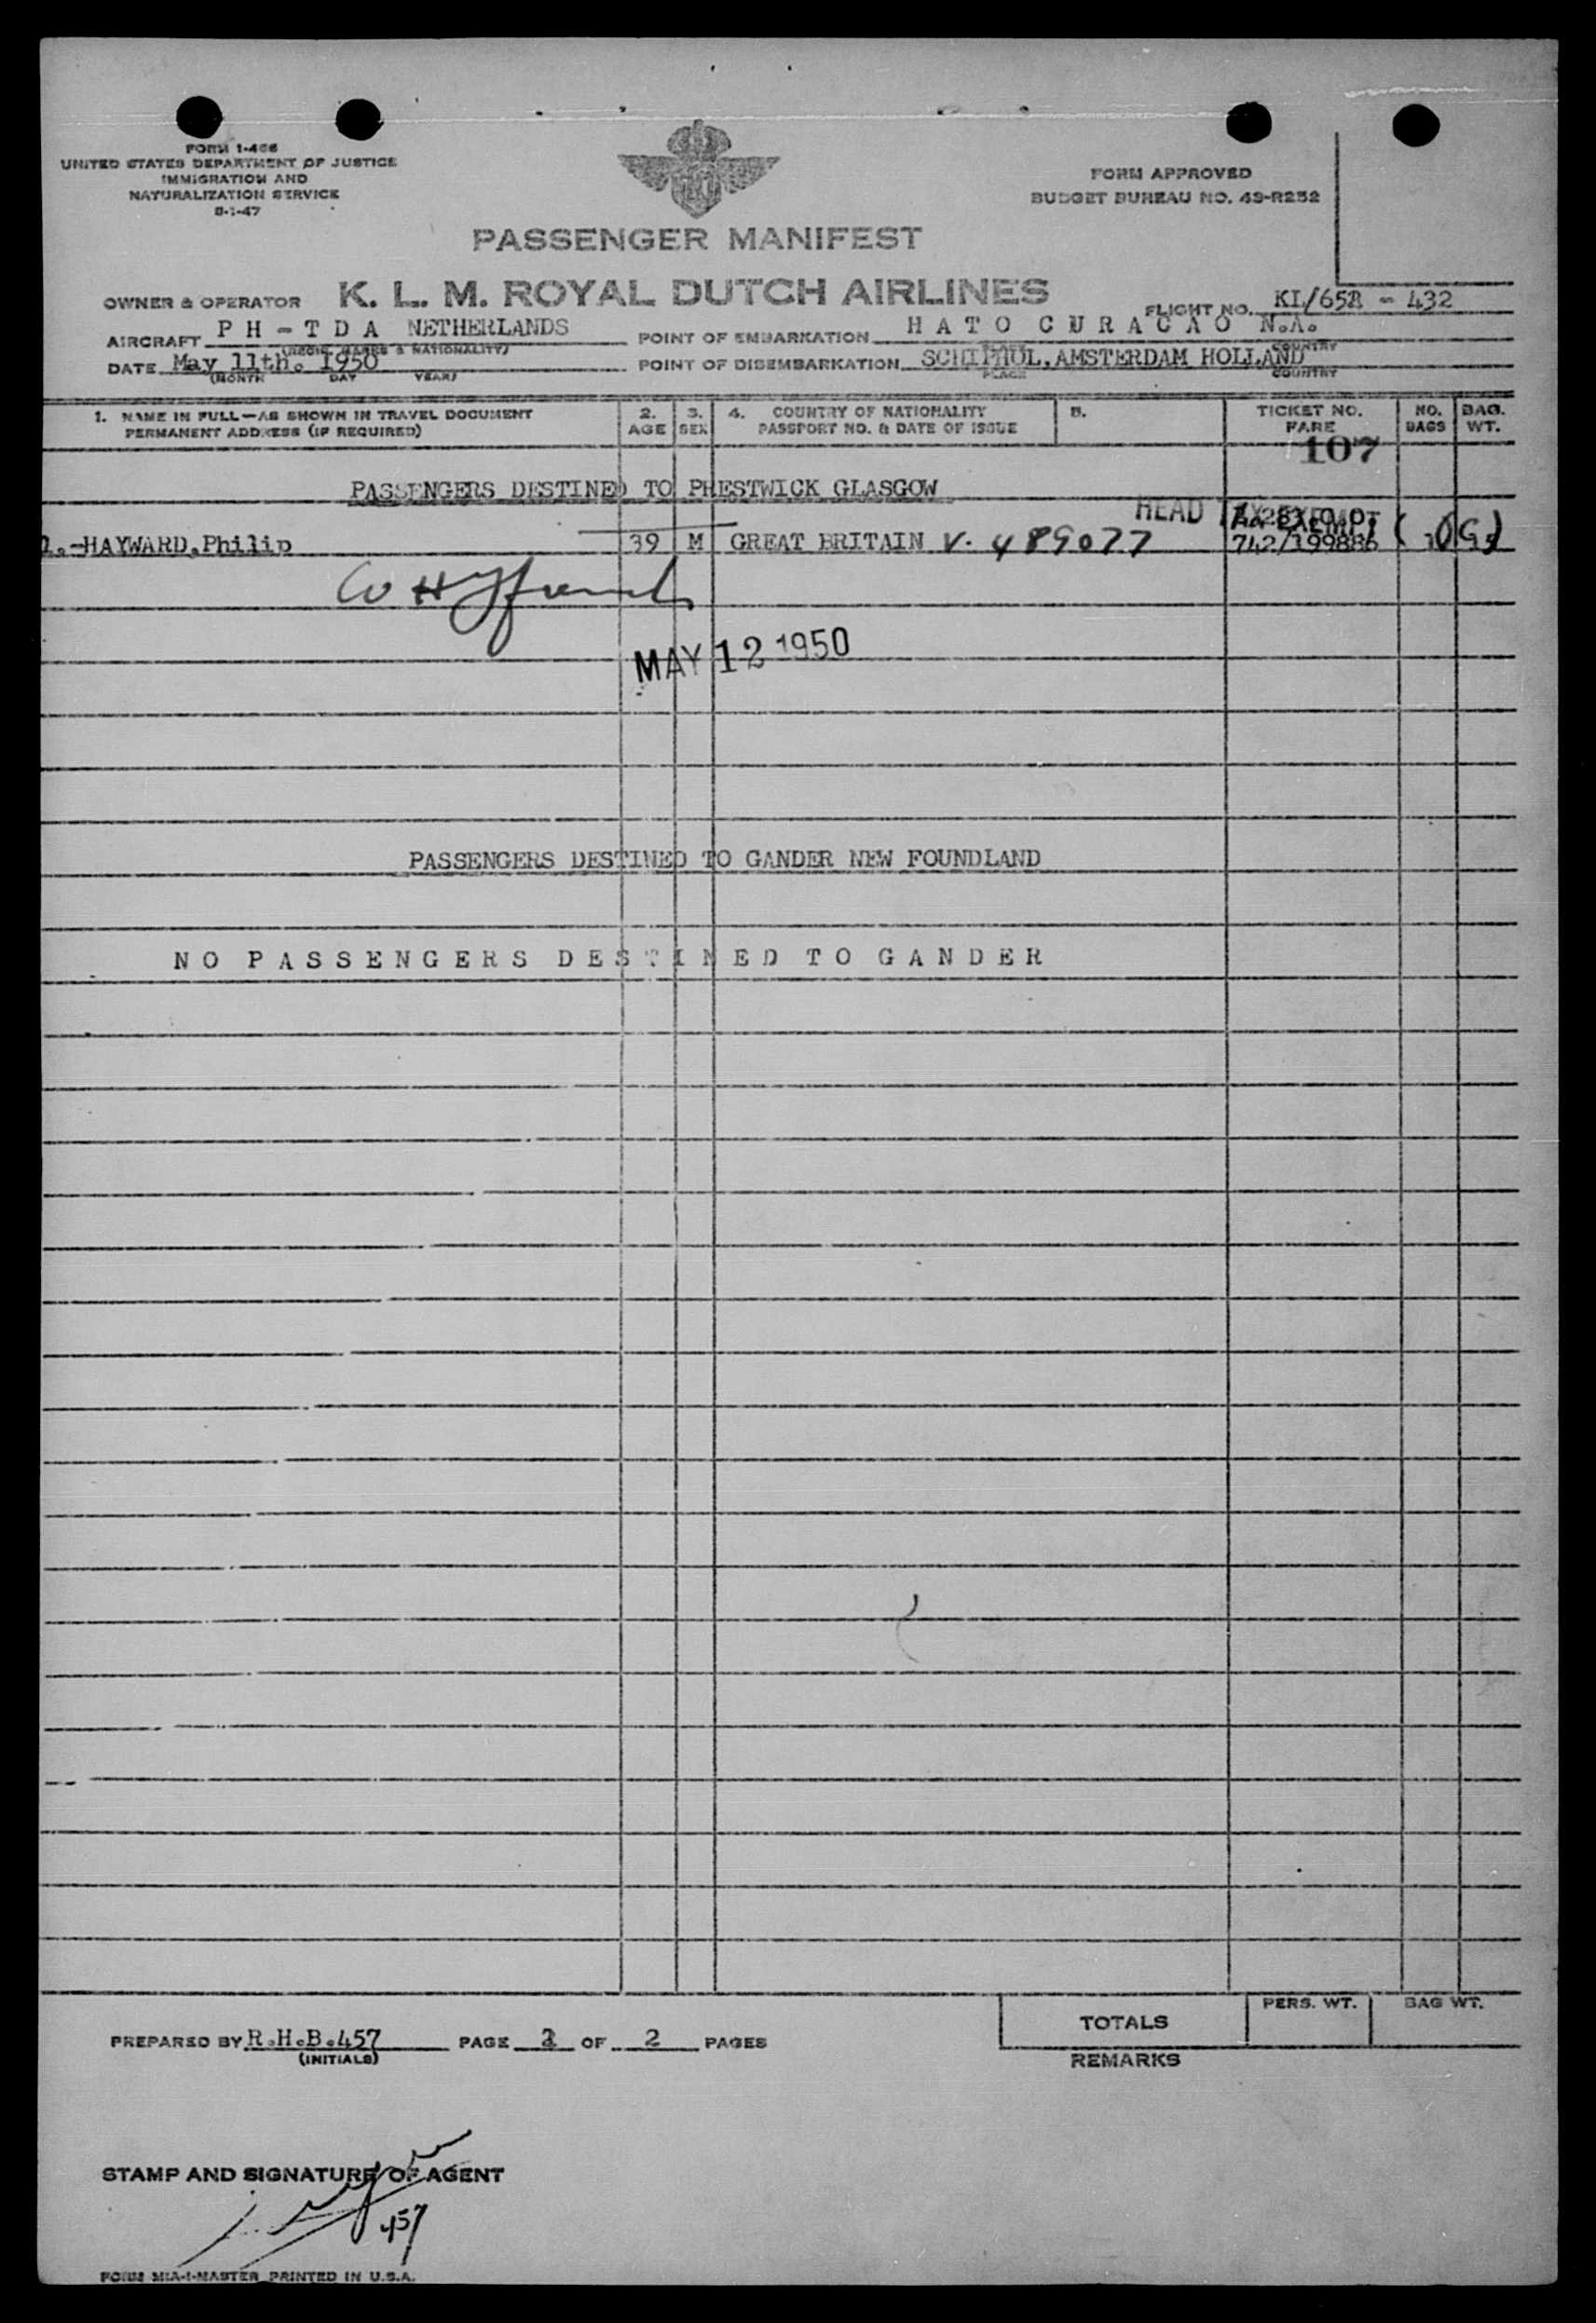 FORM I-466
UNITED STATES DEPARTMENT OF JUSTICE
IMMIGRATION AND
NATURALIZATION SERVICE
8-1-47
FORM APPROVED
BUDGET BUREAU NO. 43-R252
PASSENGER MANIFEST
OWNER & OPERATOR K. L. M. ROYAL DUTCH AIRLINES FLIGHT NO. KL/652 - 432
AIRCRAFT P H - T D A NETHERLANDS POINT OF EMBARKATION H A T O C U R A C A O N.A.
(REGIS. MARKS & NATIONALITY) COUNTRY
DATE May 11th. 1950 POINT OF DISEMBARKATION SCHIPHOL, AMSTERDAM HOLLAND
(MONTH DAY YEAR) PLACE COUNTRY
1. NAME IN FULL—AS SHOWN IN TRAVEL DOCUMENT 2. 3. 4. COUNTRY OF NATIONALITY 5. TICKET NO. NO. BAG.
PERMANENT ADDRESS (IF REQUIRED) AGE SEX PASSPORT NO. & DATE OF ISSUE FARE BAGS WT.
107
PASSENGERS DESTINED TO PRESTWICK GLASGOW
HEAD TAX EXEMPT
1.-HAYWARD, Philip 39 M GREAT BRITAIN V. 489077 742/199886
MAY 12 1950
PASSENGERS DESTINED TO GANDER NEW FOUNDLAND
N O P A S S E N G E R S D E S T I N E D T O G A N D E R
TOTALS PERS. WT. BAG WT.
PREPARED BY R.H.B.457 PAGE 2 OF 2 PAGES
(INITIALS)
REMARKS
STAMP AND SIGNATURE OF AGENT
457
FORM MIA-1-MASTER PRINTED IN U.S.A.